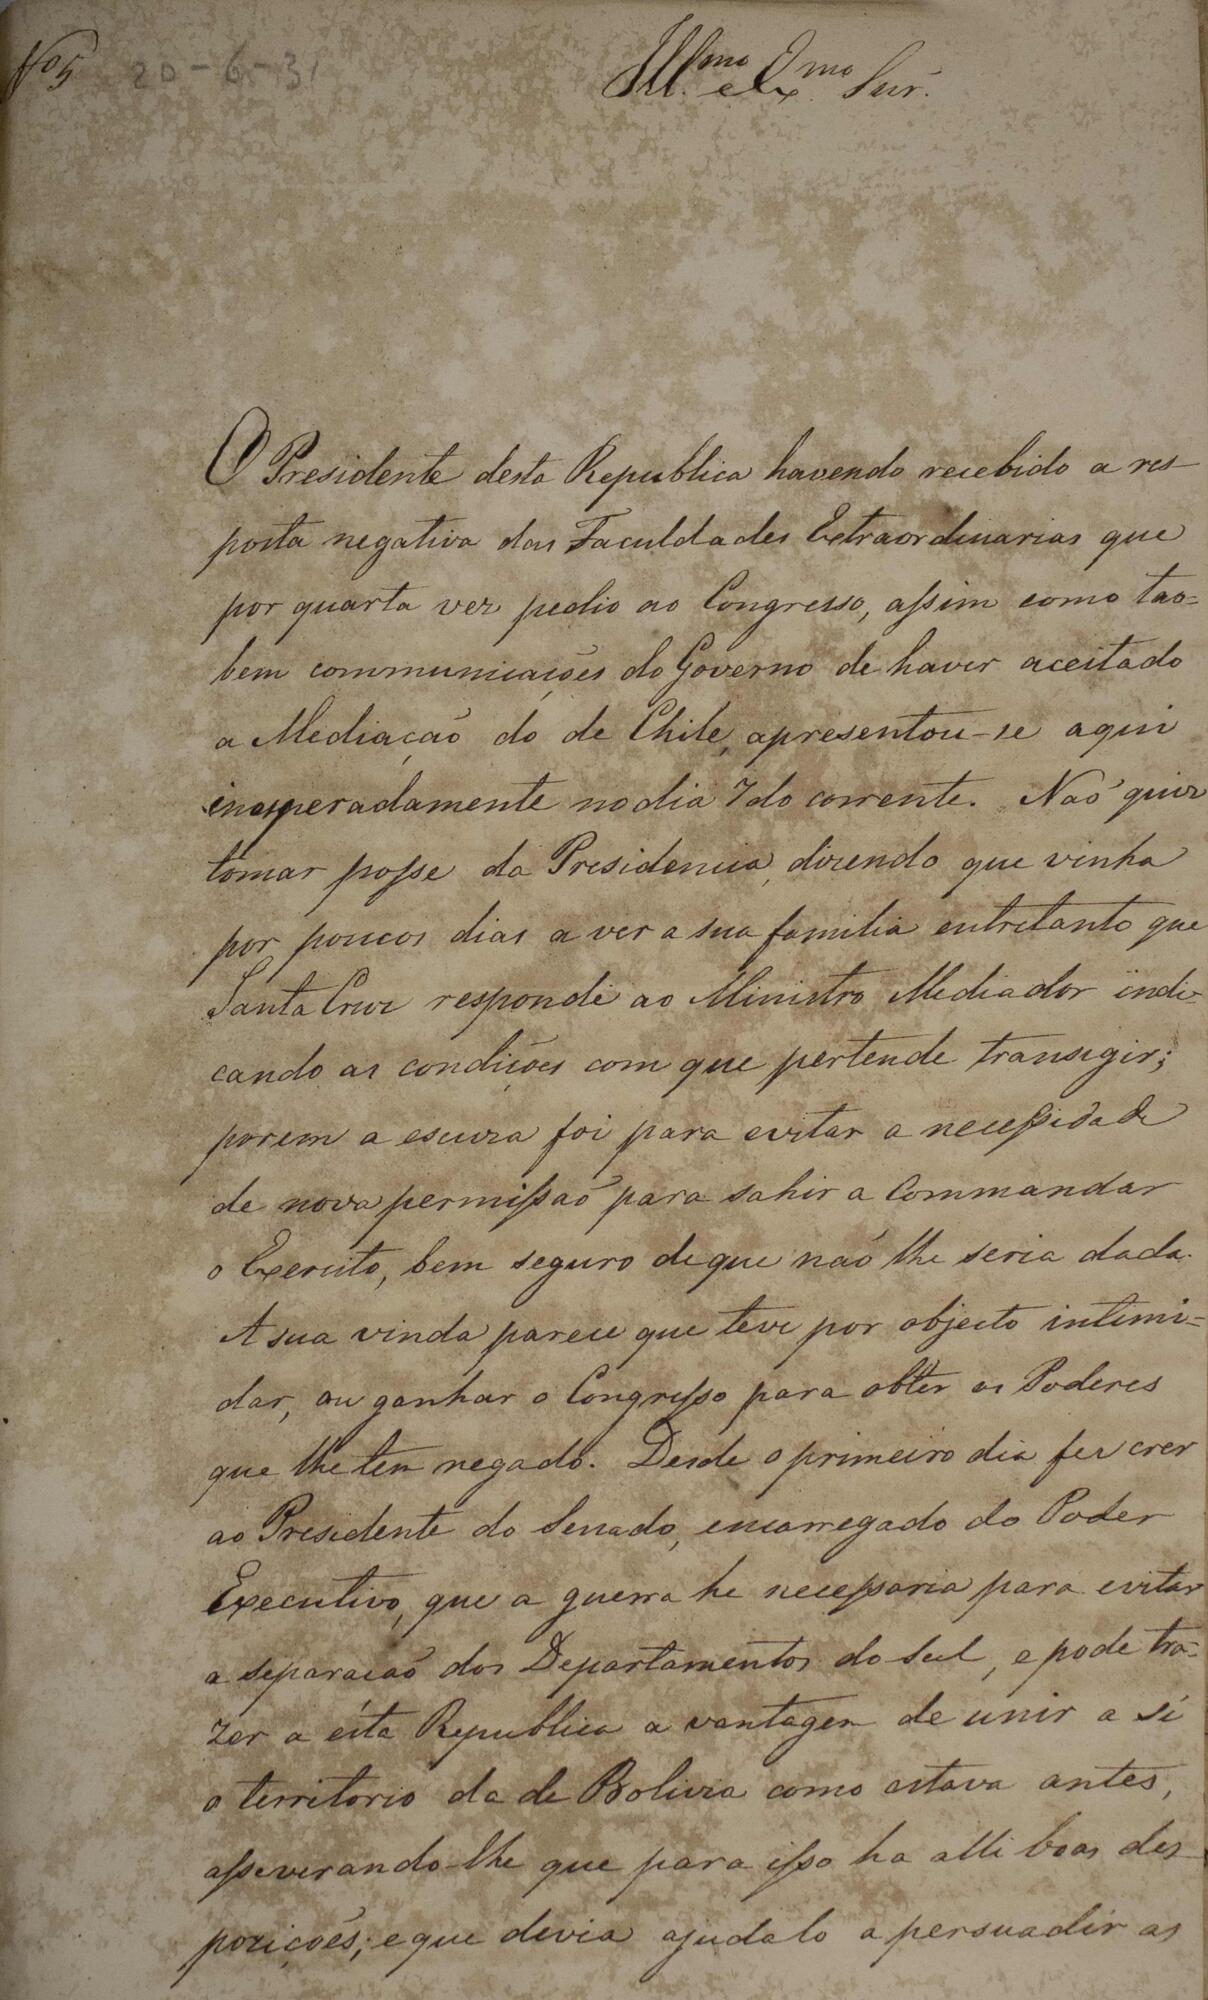 Nº 5 20-6-31
Ill.mo e Ex.mo Snr.
O Presidente desta Republica havendo recebido a res-
posta negativa das Faculdades Extraordinarias que
por quarta vez pedio ao Congresso, assim como tao=
bem communicações do Governo de haver aceitado
a Mediação do de Chile, apresentou-se aqui
inesperadamente no dia 7 do corrente. Naõ quiz
tomar posse da Presidencia, dizendo que vinha
por poucos dias a ver a sua familia entretanto que
Santa Cruz responde ao Ministro Mediador indi-
cando as condições com que pertende transigir;
porem a escuza foi para evitar a necessidade
de nova permissaõ para sahir a Commandar
o Exercito, bem seguro de que naõ lhe seria dada.
A sua vinda parece que teve por objecto intimi=
dar, ou ganhar o Congresso para obter os Poderes
que lhe tem negado. Desde o primeiro dia fez crer
ao Presidente do Senado, encarregado do Poder
Executivo, que a guerra he necessaria para evitar
a separacaõ dos Departamentos do Sul, e pode tra=
zer a esta Republica a vantagem de unir a si
o territorio da de Bolivia como estava antes,
asseverando-lhe que para isso ha alli boas des-
poziçoẽs; e que devia ajudalo a persuadir as